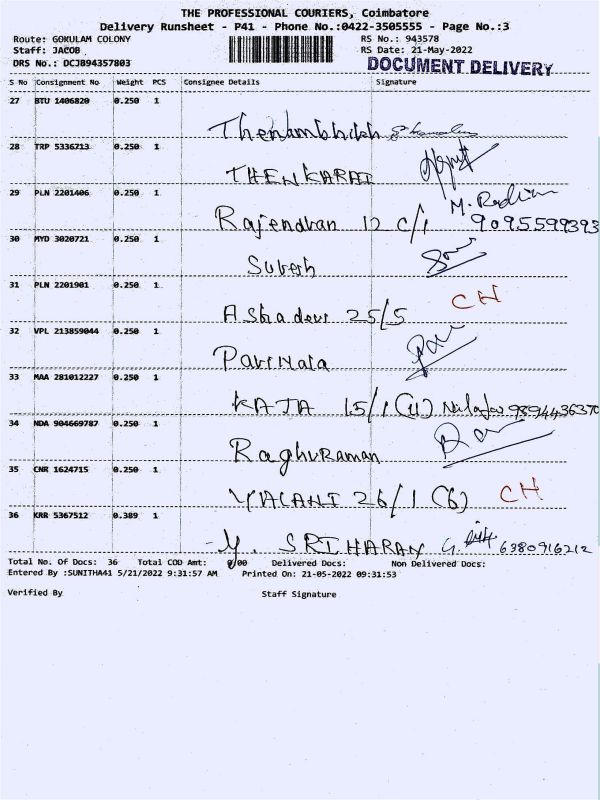 THE PROFESSIONAL COURIERS, Coimbatore
Delivery Runsheet - P41 - Phone No.:0422-3505555 - Page No.:3
Route: GOKULAM COLONY RS No.: 943578
Staff: JACOB RS Date: 21-May-2022
DRS No.: DCJ894357803 DOCUMENT DELIVERY
S No Consignment No Weight PCS Consignee Details Signature
27 BTU 1406820 0.250 1
28 TRP 5336713 0.250 1
THENKARAI
29 PLN 2201406 0.250 1
Rajendran 12 C/1 9095599393
30 MYD 3020721 0.250 1
Suresh
31 PLN 2201901 0.250 1 CH
Asha devi 25/5
32 VPL 213859044 0.250 1
Parimala
33 MAA 281012227 0.250 1
KAJA 15/1 (11) 9894436370
34 NDA 904669787 0.250 1
Raghuraman
35 CNR 1624715 0.250 1
26/1 (6) CH
36 KRR 5367512 0.389 1
Y. SRI HARAN 6380916212
Total No. Of Docs: 36 Total COD Amt: 0.00 Delivered Docs: Non Delivered Docs:
Entered By :SUNITHA41 5/21/2022 9:31:57 AM Printed On: 21-05-2022 09:31:53
Verified By Staff Signature